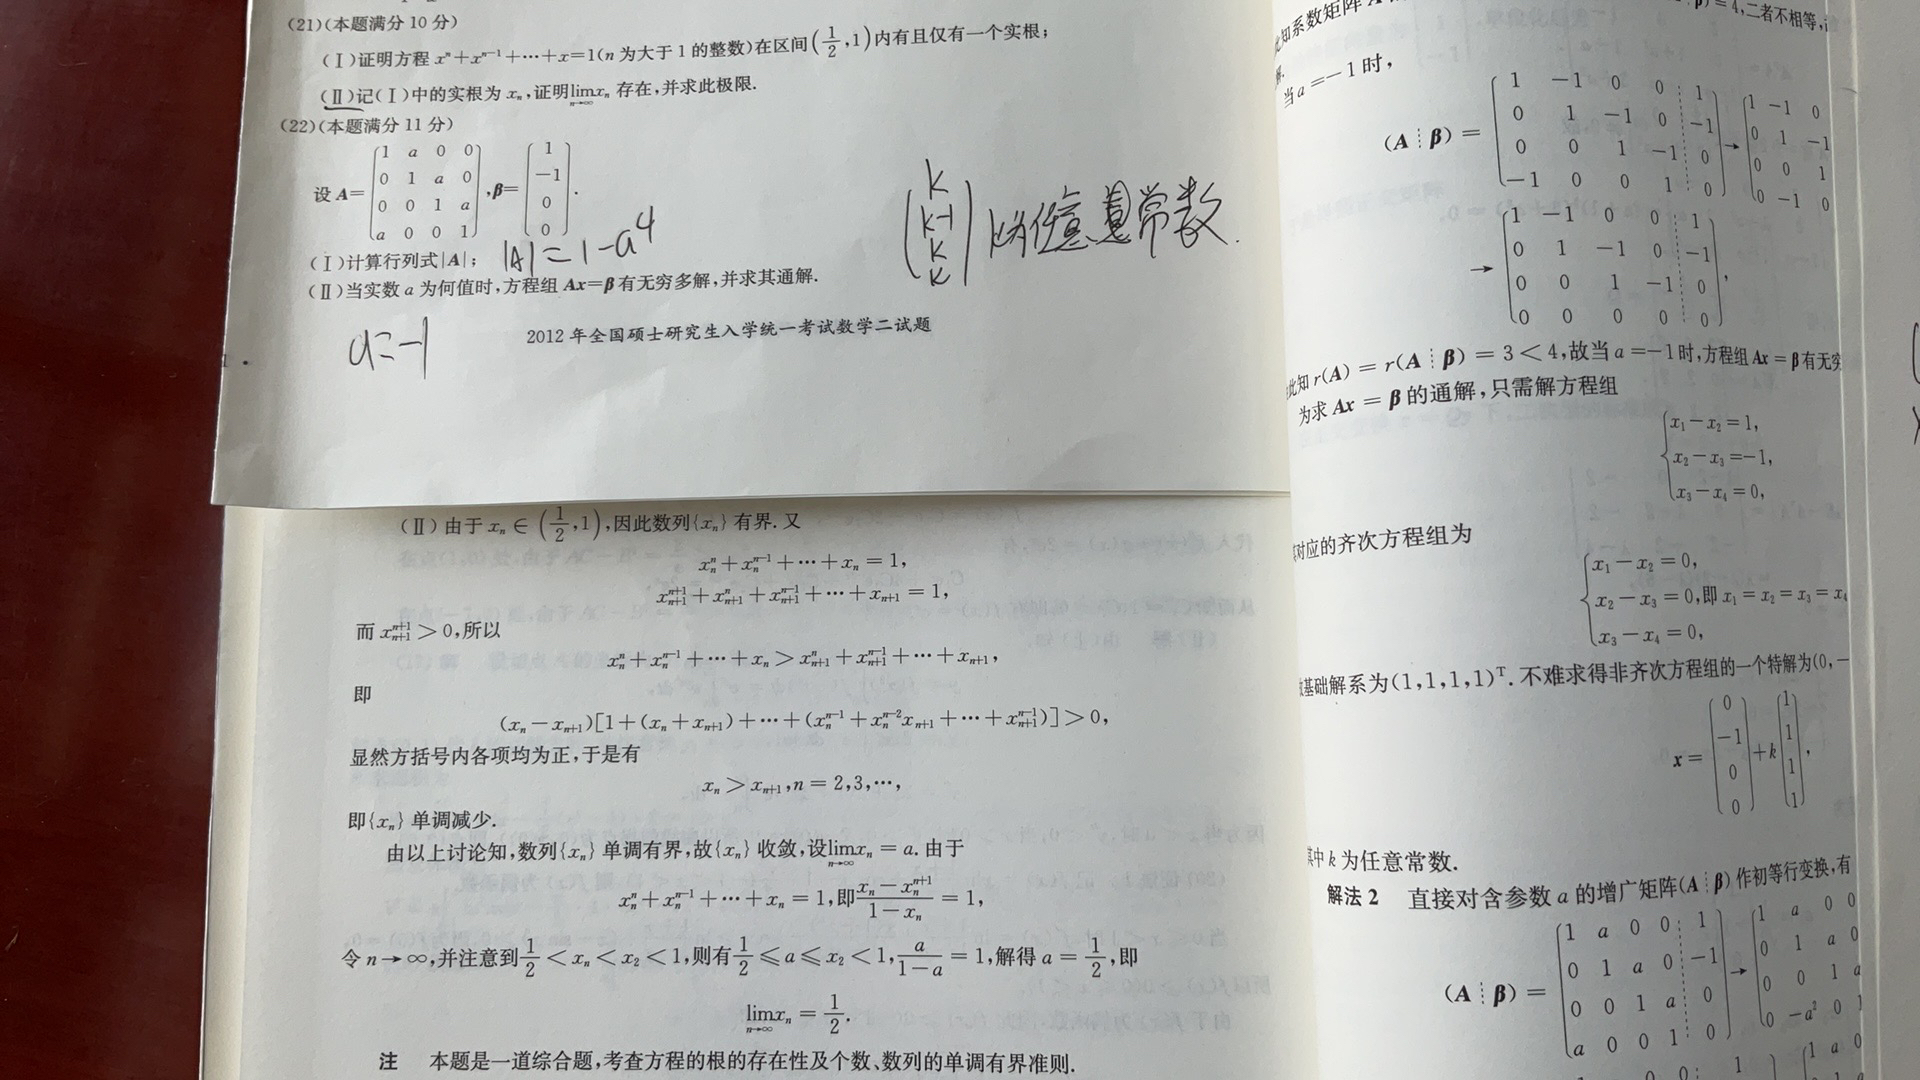 (21)(本题满分 10 分)
(Ⅰ)证明方程 xⁿ+xⁿ⁻¹+⋯+x=1(n 为大于 1 的整数)在区间(1/2,1)内有且仅有一个实根;
(Ⅱ)记(Ⅰ)中的实根为 xₙ,证明lim(n→∞)xₙ 存在,并求此极限.
(22)(本题满分 11 分)
设 A=
1 a 0 0
0 1 a 0
0 0 1 a
a 0 0 1
,β=
1
−1
0
0
.
(Ⅰ)计算行列式|A|; |A|=1-a⁴
(Ⅱ)当实数 a 为何值时,方程组 Ax=β 有无穷多解,并求其通解.
a=-1
k
k-1
k
k
k为任意常数.
2012 年全国硕士研究生入学统一考试数学二试题
(Ⅱ) 由于 xₙ ∈ (1/2,1),因此数列{xₙ} 有界. 又
xₙⁿ + xₙⁿ⁻¹ + ⋯ + xₙ = 1,
xₙ₊₁ⁿ⁺¹ + xₙ₊₁ⁿ + xₙ₊₁ⁿ⁻¹ + ⋯ + xₙ₊₁ = 1,
而 xₙ₊₁ⁿ⁺¹ > 0,所以
xₙⁿ + xₙⁿ⁻¹ + ⋯ + xₙ > xₙ₊₁ⁿ + xₙ₊₁ⁿ⁻¹ + ⋯ + xₙ₊₁,
即
(xₙ − xₙ₊₁)[1 + (xₙ + xₙ₊₁) + ⋯ + (xₙⁿ⁻¹ + xₙⁿ⁻²xₙ₊₁ + ⋯ + xₙ₊₁ⁿ⁻¹)] > 0,
显然方括号内各项均为正,于是有
xₙ > xₙ₊₁,n = 2,3,⋯,
即{xₙ} 单调减少.
由以上讨论知,数列{xₙ} 单调有界,故{xₙ} 收敛,设lim(n→∞)xₙ = a. 由于
xₙⁿ + xₙⁿ⁻¹ + ⋯ + xₙ = 1,即(xₙ − xₙⁿ⁺¹)/(1 − xₙ) = 1,
令 n → ∞,并注意到1/2 < xₙ < x₂ < 1,则有1/2 ⩽ a ⩽ x₂ < 1,a/(1−a) = 1,解得 a = 1/2,即
lim(n→∞)xₙ = 1/2.
注 本题是一道综合题,考查方程的根的存在性及个数、数列的单调有界准则.
知系数矩阵
= 4,二者不相等,
当 a =− 1 时,
(A ⋮ β) =
1 −1 0 0 ⋮ 1
0 1 −1 0 ⋮ −1
0 0 1 −1 ⋮ 0
−1 0 0 1 ⋮ 0
→
1 −1 0
0 1 −1
0 0 1
0 −1 0
→
1 −1 0 0 ⋮ 1
0 1 −1 0 ⋮ −1
0 0 1 −1 ⋮ 0
0 0 0 0 ⋮ 0
,
此知 r(A) = r(A ⋮ β) = 3 < 4,故当 a =− 1 时,方程组 Ax = β 有无穷
为求 Ax = β 的通解,只需解方程组
x₁ − x₂ = 1,
x₂ − x₃ =− 1,
x₃ − x₄ = 0,
对应的齐次方程组为
x₁ − x₂ = 0,
x₂ − x₃ = 0,即 x₁ = x₂ = x₃ = x₄
x₃ − x₄ = 0,
基础解系为(1,1,1,1)ᵀ. 不难求得非齐次方程组的一个特解为(0,−
x =
0
−1
0
0
+ k
1
1
1
1
,
其中 k 为任意常数.
解法 2 直接对含参数 a 的增广矩阵(A ⋮ β) 作初等行变换,有
(A ⋮ β) =
1 a 0 0 ⋮ 1
0 1 a 0 ⋮ −1
0 0 1 a ⋮ 0
a 0 0 1 ⋮ 0
→
1 a 0 0
0 1 a 0
0 0 1 a
0 −a² 0 1